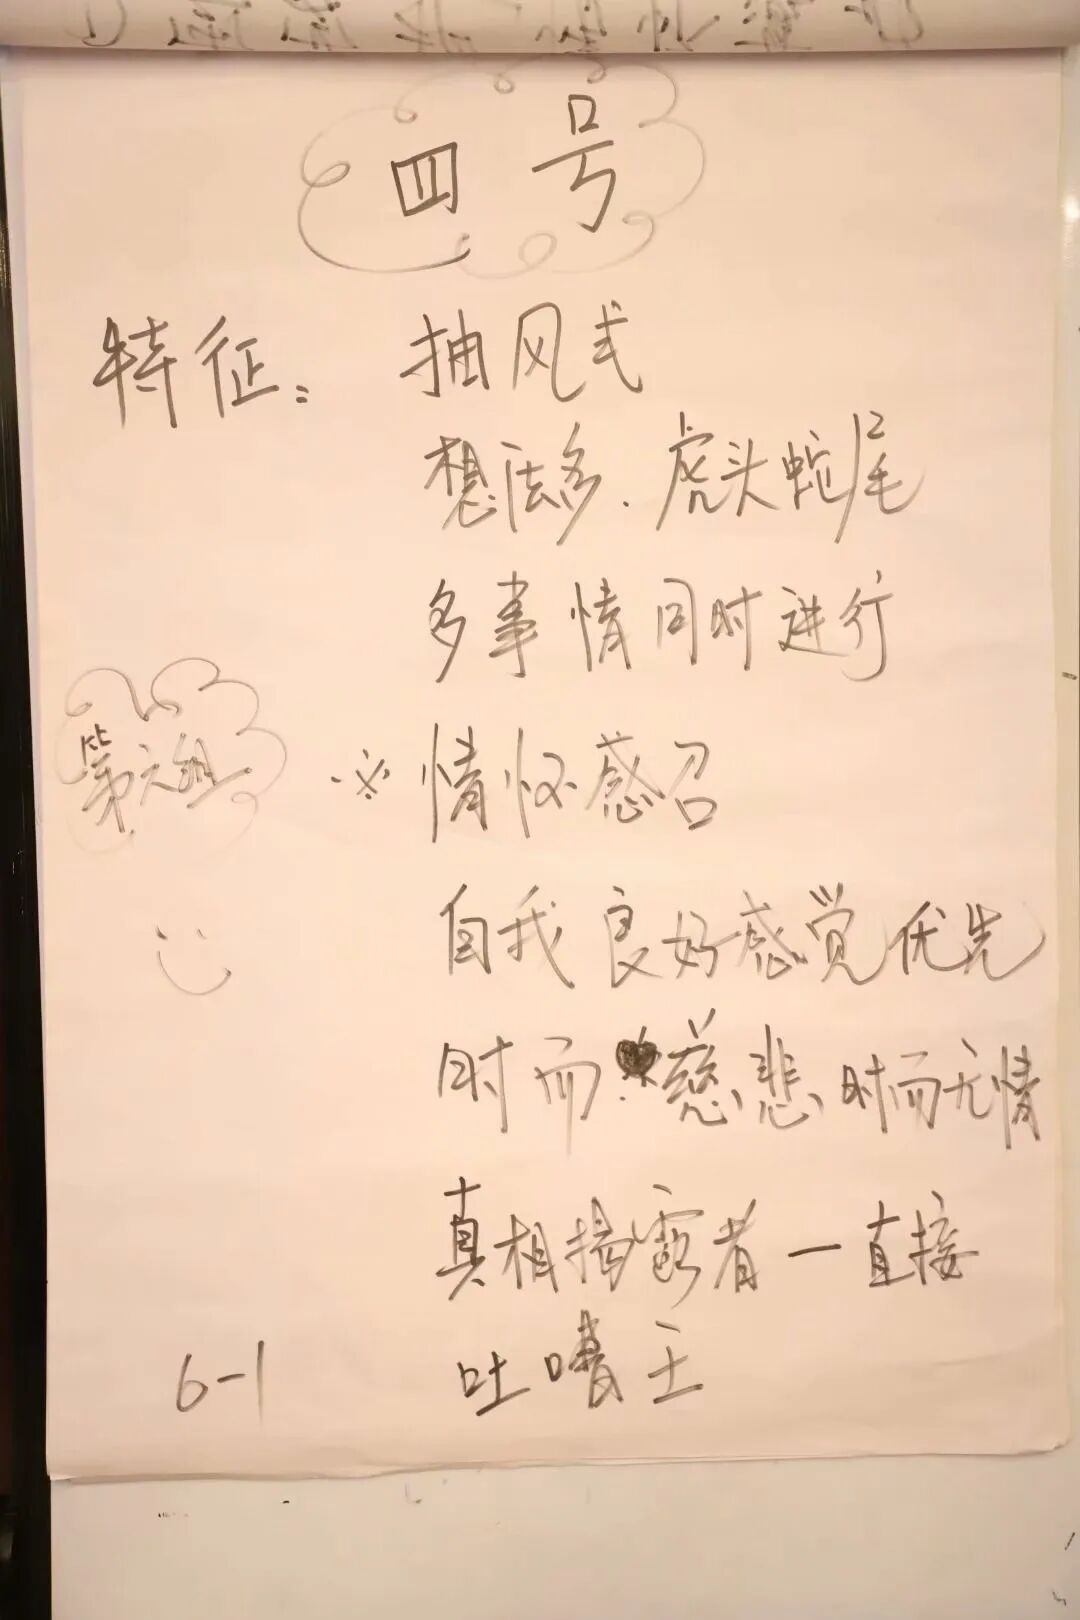 四号
特征：抽风式
想法多．虎头蛇尾
多事情同时进行
第六组
※情怀感召
自我良好感觉优先
时而慈悲、时而无情
真相揭露者－直接
吐嘈王
6-1